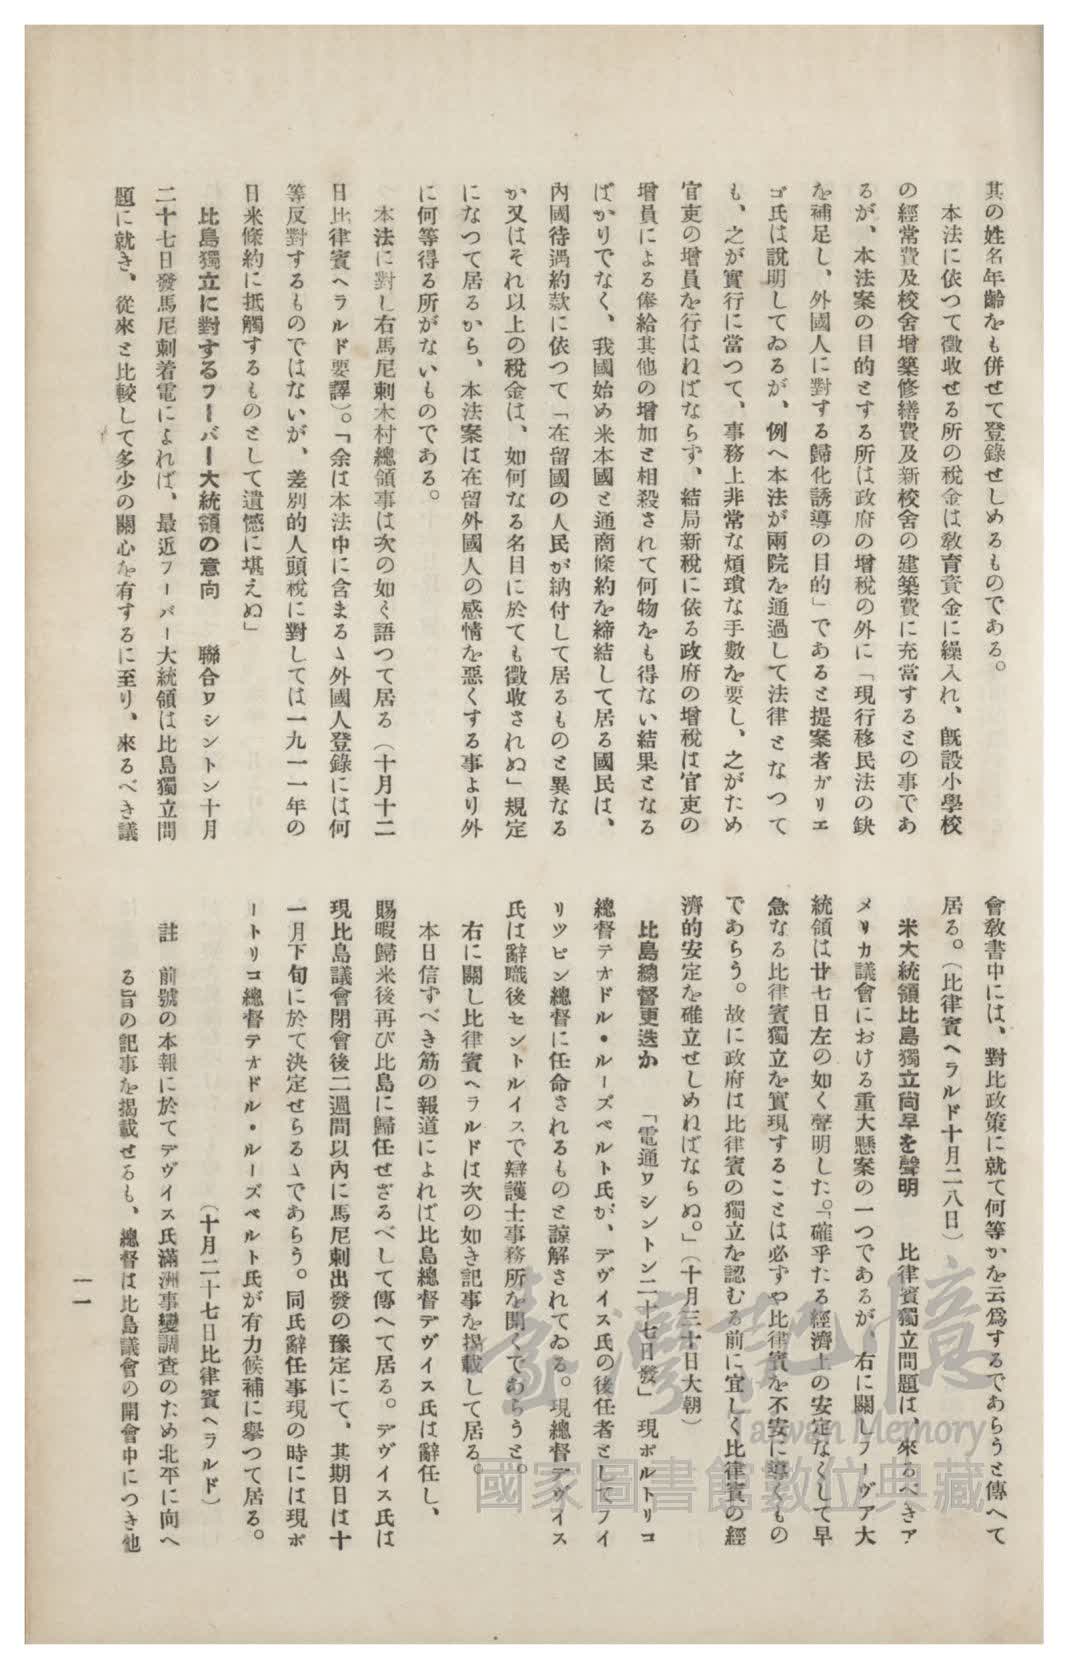 其の姓名年齡をも併せて登錄せしめるものである。
本法に依つて徵收せる所の稅金は敎育資金に繰入れ、旣設小學校
の經常費及校舍增築修繕費及新校舍の建築費に充當するとの事であ
るが、本法案の目的とする所は政府の增稅の外に「現行移民法の缺
を補足し、外國人に對する歸化誘導の目的」であると提案者ガリエ
ゴ氏は說明してゐるが、例へ本法が兩院を通過して法律となつて
も、之が實行に當つて、事務上非常な煩瑣な手數を要し、之がため
官吏の增員を行はねばならず、結局新稅に依る政府の增稅は官吏の
增員による俸給其他の增加と相殺されて何物をも得ない結果となる
ばかりでなく、我國始め米本國と通商條約を締結して居る國民は、
內國待遇約款に依つて「在留國の人民が納付して居るものと異なる
か又はそれ以上の稅金は、如何なる名目に於ても徵收されぬ」規定
になつて居るから、本法案は在留外國人の感情を惡くする事より外
に何等得る所がないものである。
本法に對し右馬尼剌木村總領事は次の如く語つて居る（十月十二
日比律賓ヘラルド要譯）。「余は本法中に含まるゝ外國人登錄には何
等反對するものではないが、差別的人頭稅に對しては一九一一年の
日米條約に抵觸するものとして遺憾に堪えぬ」
比島獨立に對するフーバー大統領の意向 聯合ワシントン十月
二十七日發馬尼剌着電によれば、最近フーバー大統領は比島獨立問
題に就き、從來と比較して多少の關心を有するに至り、來るべき議
會敎書中には、對比政策に就て何等かを云爲するであらうと傳へて
居る。（比律賓ヘラルド十月二八日）
米大統領比島獨立尙早を聲明 比律賓獨立問題は、來るべきア
メリカ議會における重大懸案の一つであるが、右に關しフーヴア大
統領は廿七日左の如く聲明した。「確乎たる經濟上の安定なくして早
急なる比律賓獨立を實現することは必ずや比律賓を不安に導くもの
であらう。故に政府は比律賓の獨立を認むる前に宜しく比律賓の經
濟的安定を確立せしめねばならぬ。」（十月三十日大朝）
比島總督更迭か 「電通ワシントン二十七日發」 現ポルトリコ
總督テオドル・ルーズベルト氏が、デヴイス氏の後任者としてフイ
リツピン總督に任命されるものと諒解されてゐる。現總督デヴイス
氏は辭職後セントルイスで辯護士事務所を開くであらうと。
右に關し比律賓ヘラルドは次の如き記事を揭載して居る。
本日信ずべき筋の報道によれば比島總督デヴイス氏は辭任し、
賜暇歸米後再び比島に歸任せざるべして傳へて居る。デヴイス氏は
現比島議會閉會後二週間以內に馬尼剌出發の豫定にて、其期日は十
一月下旬に於て決定せらるゝであらう。同氏辭任事現の時には現ポ
ートリコ總督テオドル・ルーズベルト氏が有力候補に擧つて居る。
（十月二十七日比律賓ヘラルド）
註 前號の本報に於てデヴイス氏滿洲事變調査のため北平に向へ
る旨の記事を揭載せるも、總督は比島議會の開會中につき他
一一
臺灣記憶
Taiwan Memory
國家圖書館數位典藏